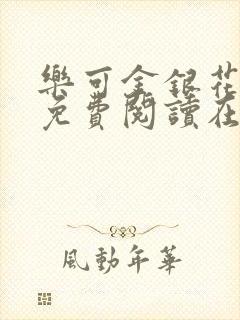 樂可金銀花
免費閱讀在
風動年華